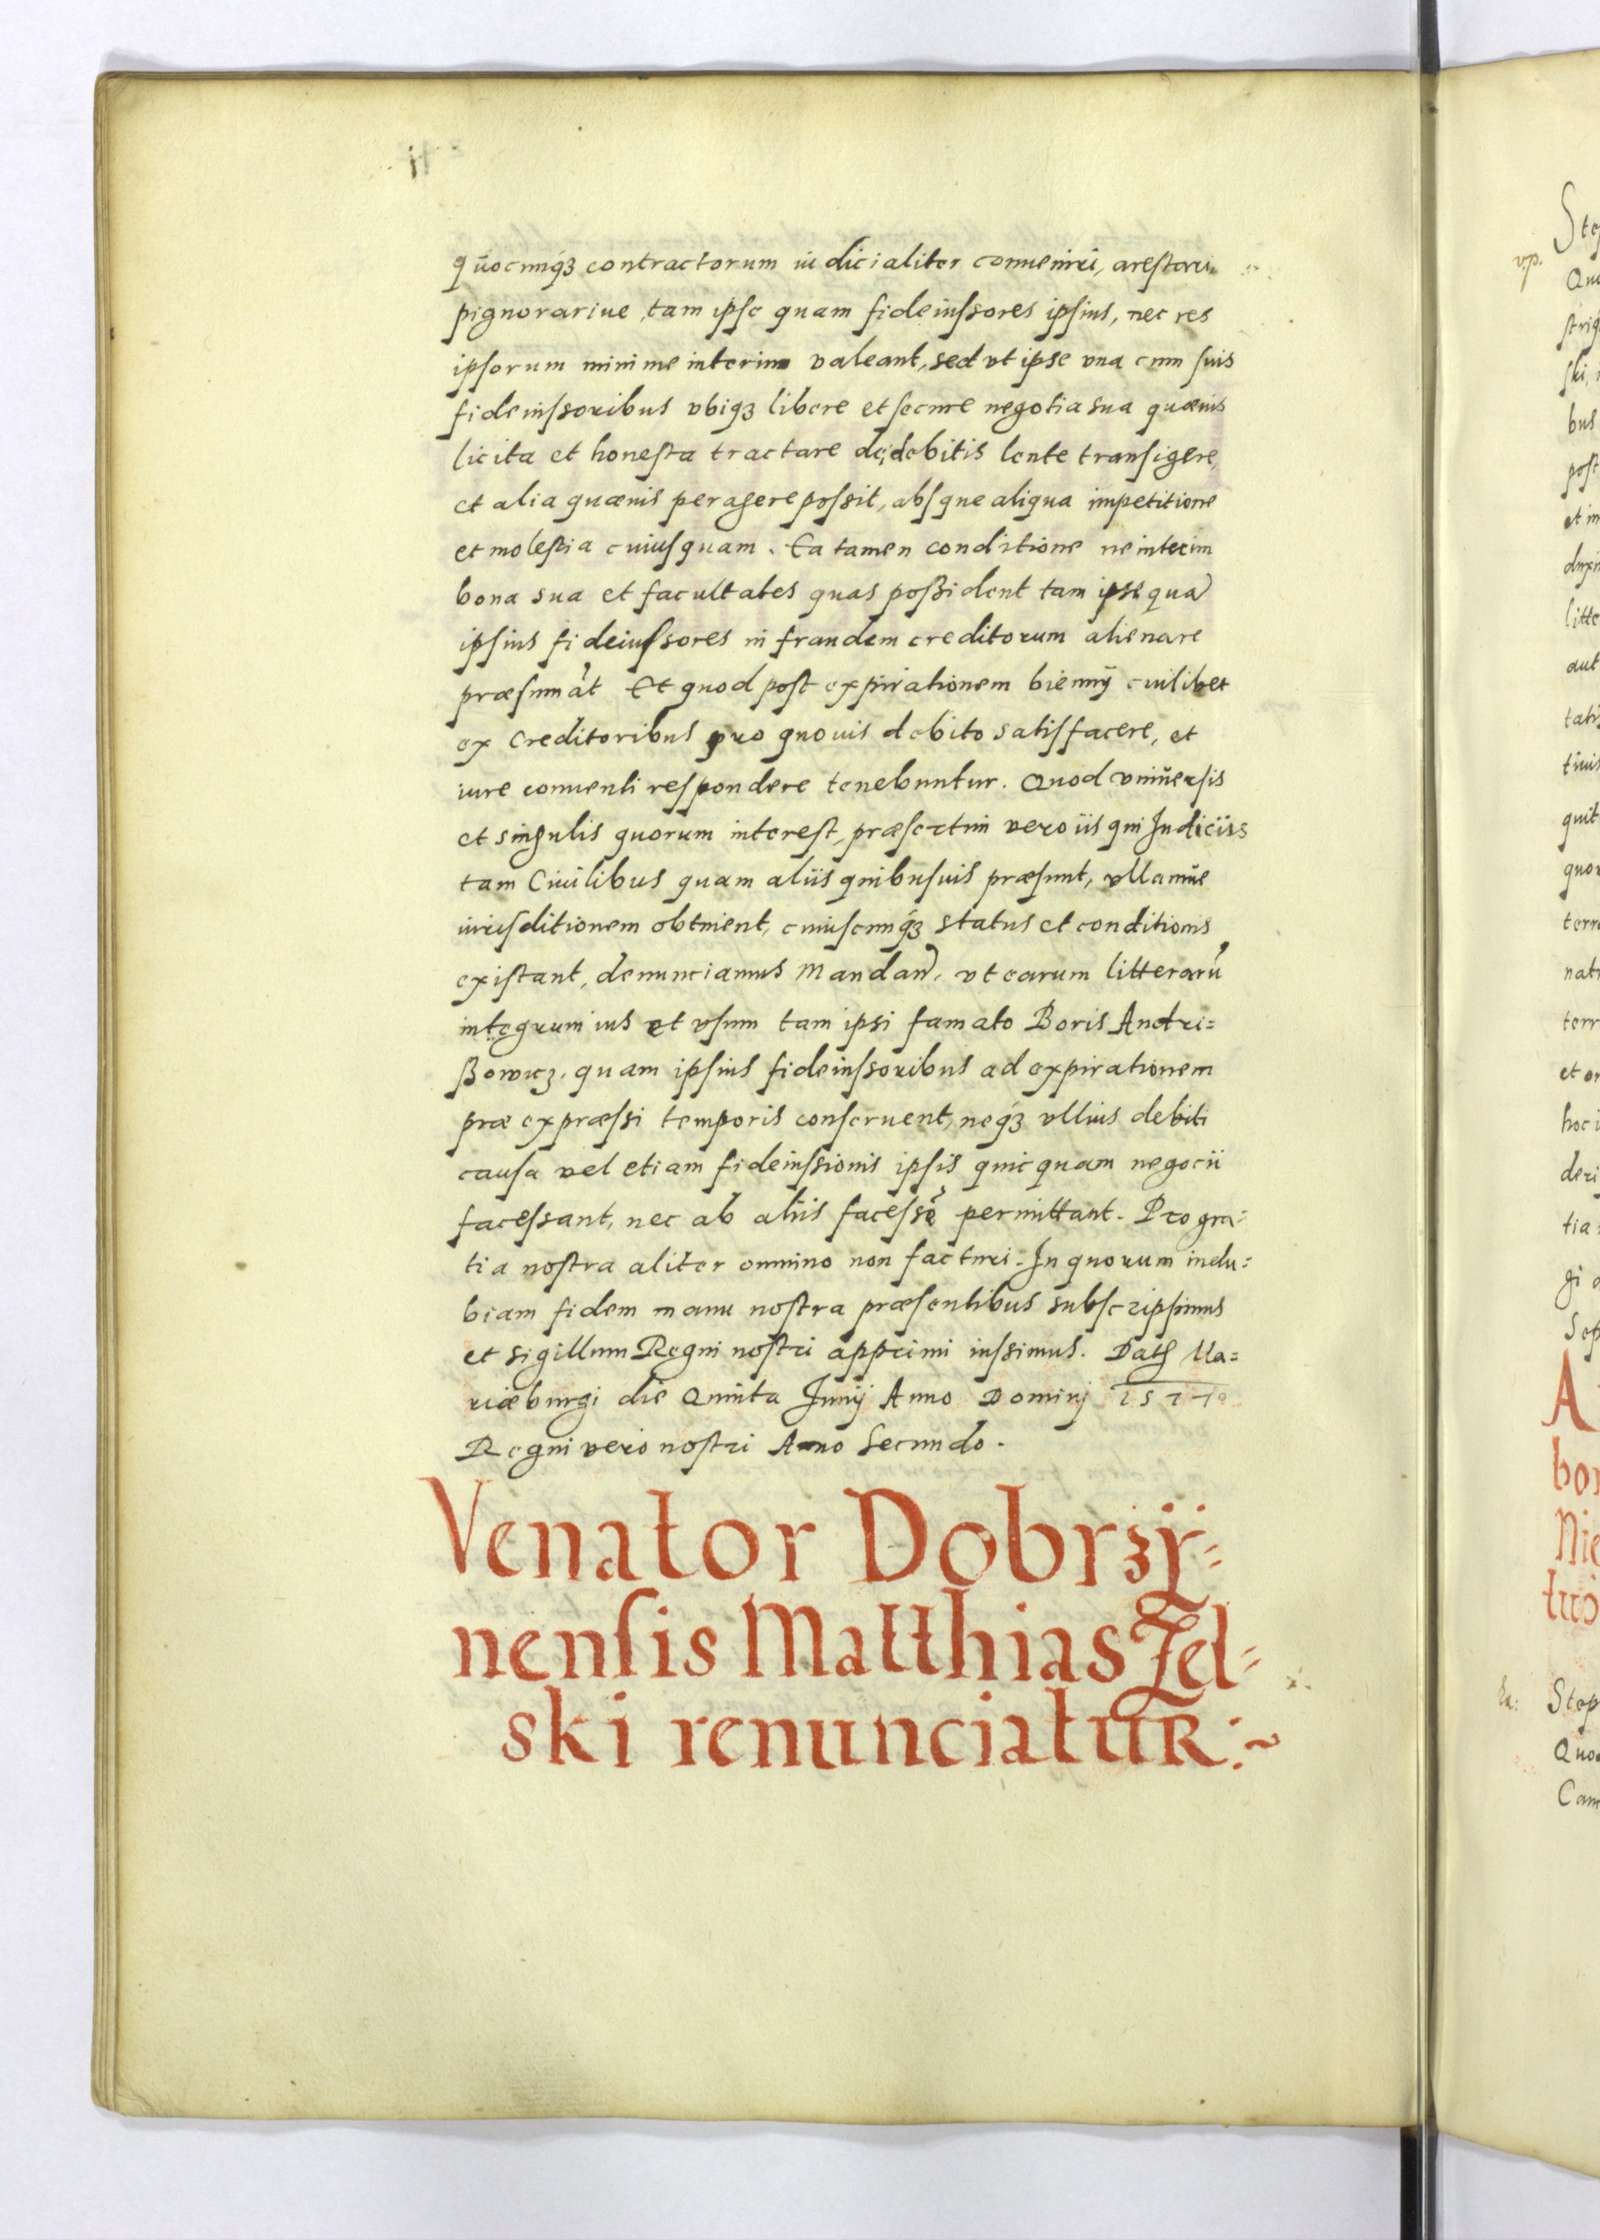 quocunq3 contractorum iudicialiter conueniri, arestari
pignorariue, tam ipse quam fideiussores ipsius, nec res
ipsorum minime interim valeant, sed vt ipse vna cum suis
fideiussoribus vbiq3 libere et secure negotia sua quæuis
licita et honesta tractare de debitis lente transigere,
et alia quæuis peragere possit, absque aliqua impetitione
et molestia cuiusquam. Ea tamen conditione ne interim
bona sua et facultates quas possident tam ipse quã
ipsius fideiussores in fraudem creditorum alienare
præsumãt Et quod post expirationem biennij cuilibet
ex Creditoribus pro quouis debito satisfacere, et
iure conuenti respondere tenebuntur. Quod vniuersis
et singulis quorum interest, præsertim vero iis qui Iudiciis
tam Ciuilibus quam aliis quibusuis præsunt, vllamue
iurisditionem obtinent, cuiuscunq3 status et conditionis
existant, denunciamus Mandan̄. vt earum litterarũ
integrum ius et vsum tam ipsi famato Boris Andri=
ßowicz. quam ipsius fideiussoribus ad expirationem
præexpræssi temporis conseruent, neq3 vllius debiti
causa vel etiam fideiussionis ipsis quicquam negocii
facessant, nec ab aliis facessẽ permittant. Pro gra=
tia nostra aliter omnino non facturi. In quorum indu=
biam fidem manu nostra præsentibus subscripsimus
et sigillum Regni nostri apprimi iussimus. Dat Ma=
riæburgi die Quinta Junij Anno Dominj
Regni vero nostri Anno Secundo.
Venator Dobrzÿ=
nensis Matthias Zel=
ski renunciatur:~